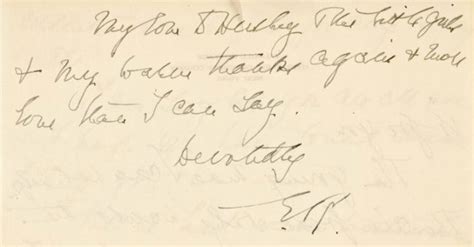 My love to Hershey The little Girls
& My warm thanks again & more
love than I can say.
Devotedly
E.R.